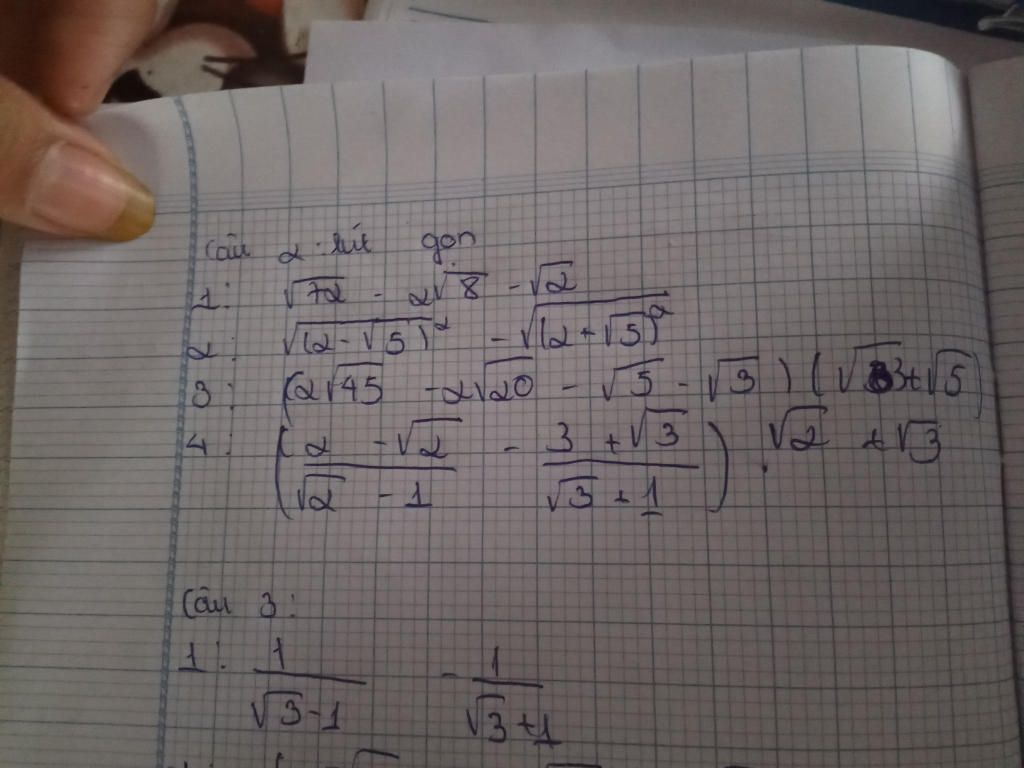 Câu 2: rút gọn
1: √72 - 2√8 - √2
2: √(2-√5)² - √(2+√5)²
3: (2√45 - 2√20 - √5 - √3)(√3+√5)
4: (2-√2/√2-1 - 3+√3/√3+1) . √2 + √3
Câu 3:
1: 1/√3-1 - 1/√3+1